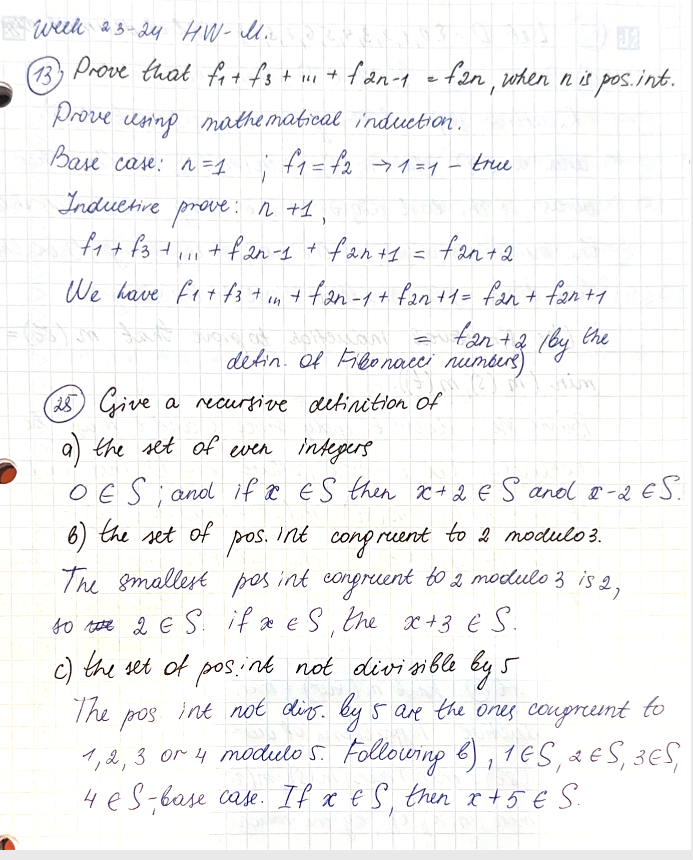 Week 23-24 HW-M.
13) Prove that f1 + f3 + ... + f2n-1 = f2n, when n is pos. int.
Prove using mathematical induction.
Base case: n=1 ; f1 = f2 → 1=1 - true
Inductive prove: n +1,
f1 + f3 + ... + f2n-1 + f2n+1 = f2n+2
We have f1 + f3 + ... + f2n-1 + f2n+1 = f2n + f2n+1
= f2n+2 (by the
defin. of Fibonacci numbers)
25) Give a recursive definition of
a) the set of even integers
0 ∈ S ; and if x ∈ S then x+2 ∈ S and x-2 ∈ S.
b) the set of pos. int congruent to 2 modulo 3.
The smallest pos int congruent to 2 modulo 3 is 2,
so 2 ∈ S. if x ∈ S, the x+3 ∈ S.
c) the set of pos. int not divisible by 5
The pos int not div. by 5 are the ones congruent to
1, 2, 3 or 4 modulo 5. Following b), 1 ∈ S, 2 ∈ S, 3 ∈ S,
4 ∈ S - base case. If x ∈ S, then x+5 ∈ S.